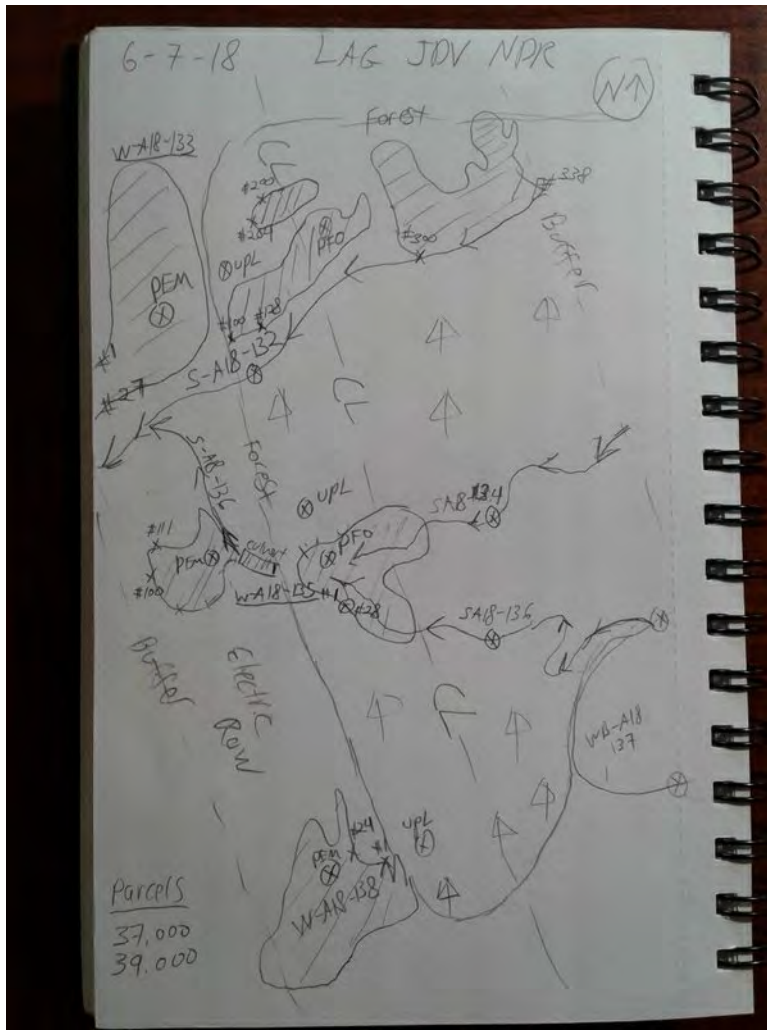 6-7-18 LAG JDV NPR
N↑
Forest
W-A18-133
#200
#204
#338
#300
PFO
UPL
Buffer
PEM
#100 #128
#1
S-A18-132
#27
Forest
S-A18-136
UPL
SA18-134
#111
PEM
culvert
PFO
#100
W-A18-135 #1
#28
SA18-136
Buffer
Electric
Row
WB-A18
137
#24
UPL
PEM
#1
W-A18-138
Parcels
37.000
39.000